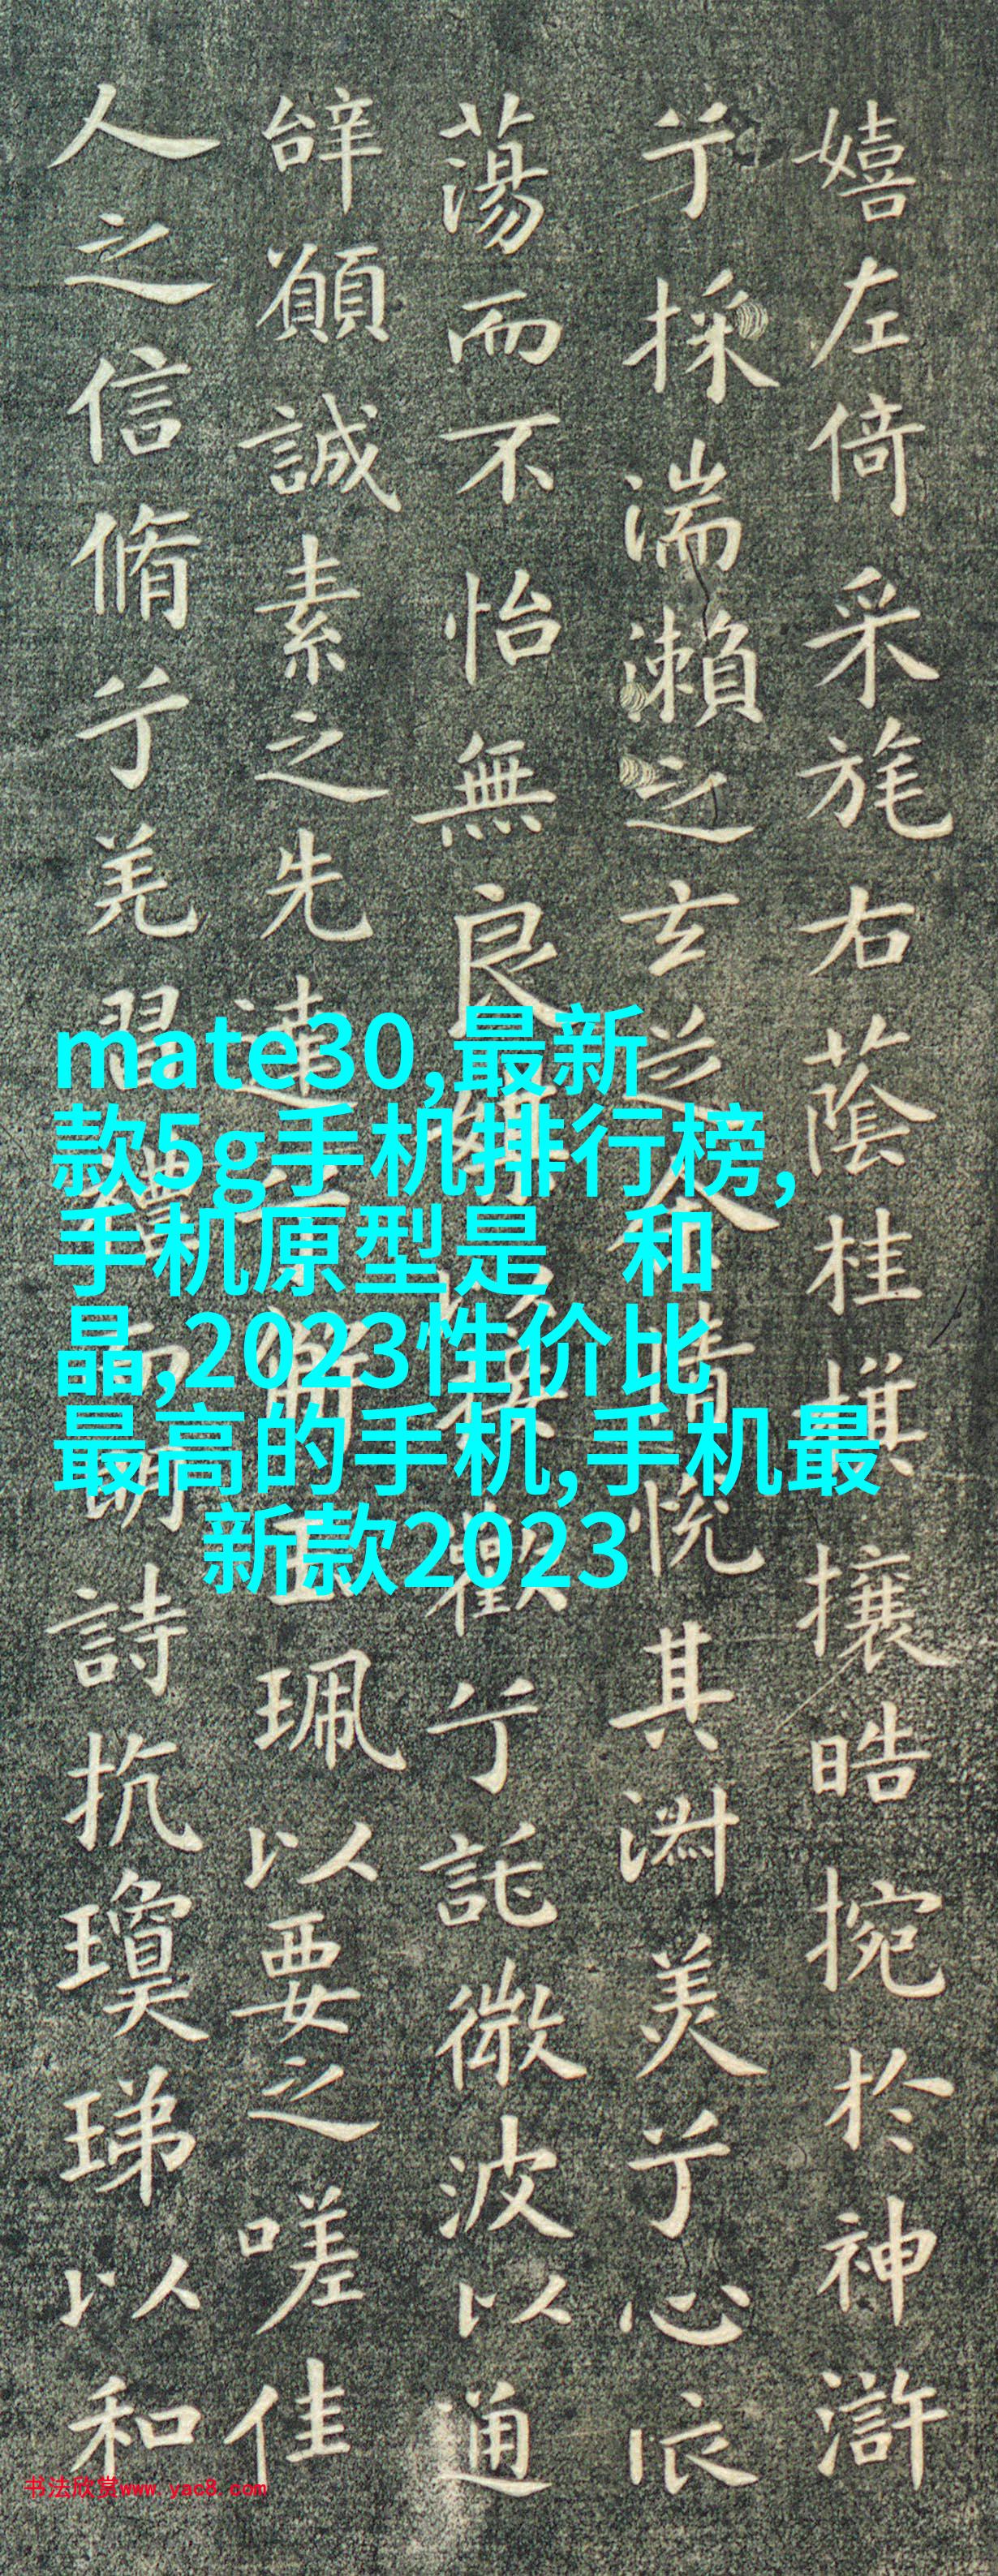 嬉左倚采旄右蔭桂旗攘晧捥於神滸
兮採湍瀨之玄芝余情悅其淑美兮心振
蕩而不怡無良媒以接歡兮託微波以通
辭願誠素之先達兮解玉珮以要之嗟佳
人之信脩兮羌習禮而明詩抗瓊珶以和
mate30,最新
款5g手机排行榜,
手机原型是 和
晶,2023性价比
最高的手机,手机最
新款2023
书法欣赏www.yac8.com